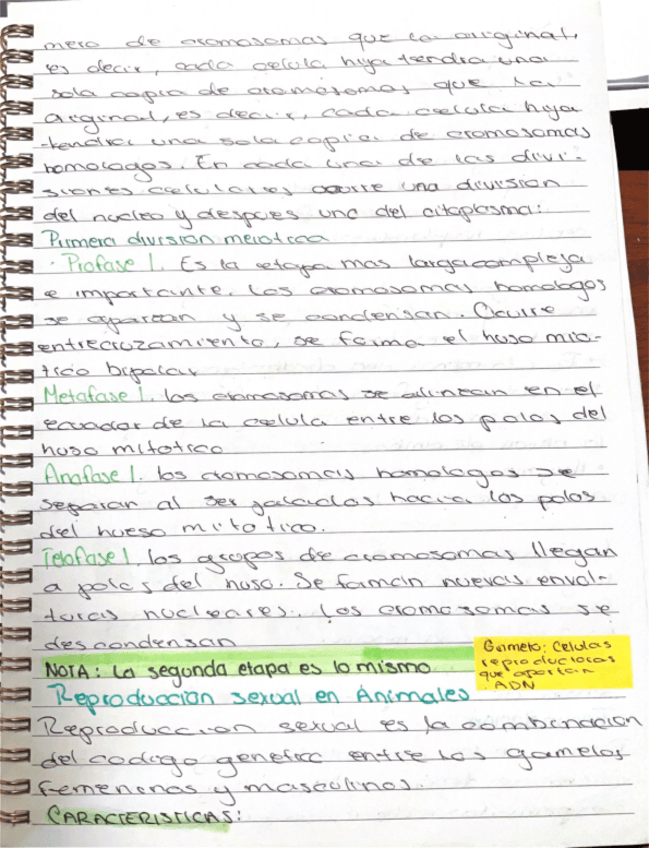 mero de cromosomas que la original,
es decir, cada celula hija tendra una
sola copia de cromosomas que la
original, es decir, cada celula hija
tendra una sola copia de cromosomas
homologos. En cada una de las divi-
siones celulares ocurre una division
del nucleo y despues una del citoplasma:
Primera division meiotica
· Profase I. Es la etapa mas larga compleja
e importante. Los cromosomas homologos
se aparean y se condensan. Ocurre
entrecruzamiento, se forma el huso mio-
tico bipolar
Metafase I. los cromosomas se alinean en el
ecuador de la celula entre los polos del
huso mitotico
Anafase I. los cromosomas homologos se
separan al ser jalados hacia los polos
del hueso mitotico.
Telofase I. los grupos de cromosomas llegan
a polos del huso. Se forman nuevas envol-
turas nucleares. Los cromosomas se
descondensan
NOTA: La segunda etapa es lo mismo
Gameto: Celulas
reproductoras
que aportan
ADN
Reproduccion sexual en Animales
Reproduccion sexual es la combinacion
del codigo genetico entre los gametos
femeninos y masculinos.
CARACTERISTICAS: